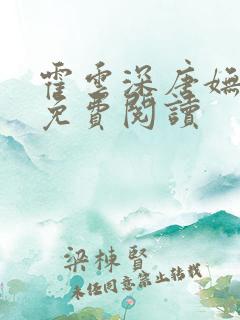 霍雲深唐嫵
免費閱讀
梁棟賢
未经同意禁止转载